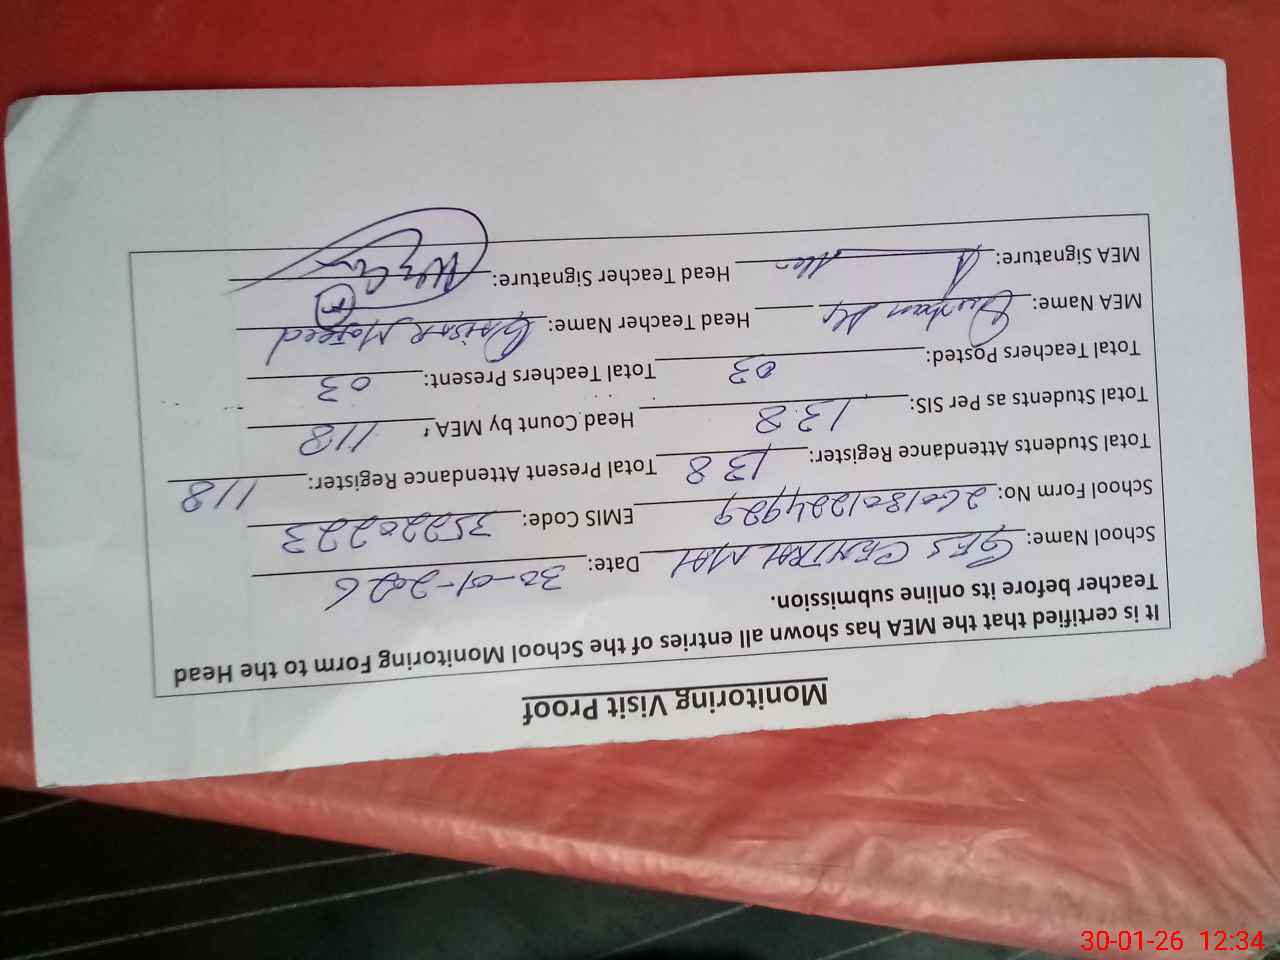 Monitoring Visit Proof
It is certified that the MEA has shown all entries of the School Monitoring Form to the Head
Teacher before its online submission.
School Name: GES CENTRAL MAL Date: 30-01-2026
School Form No: EMIS Code: 35220223
Total Students Attendance Register: 138 Total Present Attendance Register: 118
Total Students as Per SIS: 138 Head Count by MEA: 118
Total Teachers Posted: 03 Total Teachers Present: 03
MEA Name: Head Teacher Name: Majeed
MEA Signature: Head Teacher Signature:
30-01-26 12:34